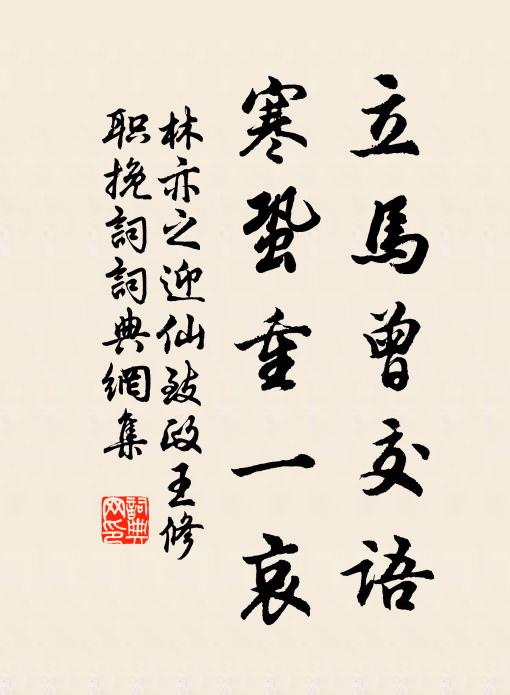 立馬曾交語
寒蛩重一哀
林亦之迎仙致政王修
职挽詞詞典網集
詞典网印